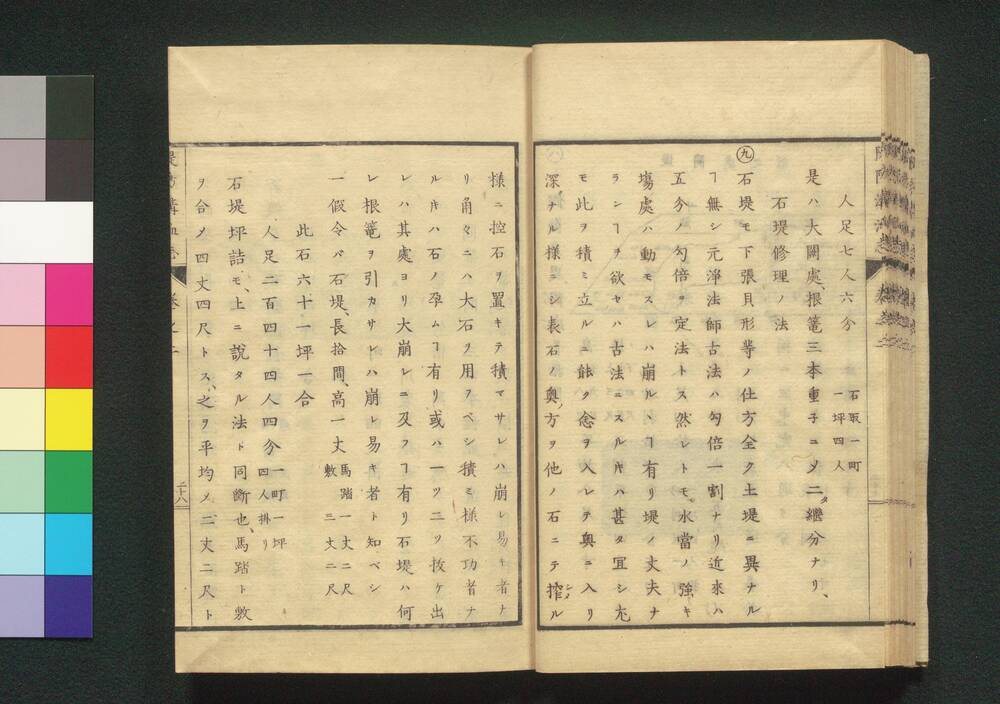 人足七人六分　石取一町
一坪四人
是ハ大聞處、根篭三本重子ニメ二タ繼分ナリ、
石堤修理ノ法
㊈石堤モ下張貝形等ノ仕方全ク土堤ニ異ナル
ヿ無シ元淨法師古法ハ勾倍一割ナリ近來ハ
五分ノ勾倍ヲ定法トス然レトモ、水當ノ強キ
塲處ハ動モスレハ崩ルヽヿ有リ堤ノ丈夫ナ
ランヿヲ欲セハ古法ニスルキハ甚タ宜シ尤
モ此ヲ積ミ立ルニ能ク念ヲ入レテ奥ニ入リ
深ナル様ニシ表石ノ奥方ヲ他ノ石ニテ搾ル
様ニ控石ヲ置キテ積マサレハ崩レ易キ者ナ
リ角々ニハ大石ヲ用フベシ積ミ様不功者ナ
ルキハ石ノ孕ムヿ有リ或ハ一ツ二ツ抜ケ出
レハ其處ヨリ大崩レニ及フヿ有リ石堤ハ何
レ根篭ヲ引カサレハ崩レ易キ者ト知ベシ
一假令バ石堤、長拾間、高一丈　馬踏一丈二尺
敷　三丈二尺
此石六十一坪一合
人足二百四十四人四分　一町一坪
四人掛リ
石堤坪詰モ、上ニ說タル法ト同斷也、馬踏ト敷
ヲ合メ四丈四尺トス、之ヲ平均メ二丈二尺ト
卷之二
二十八